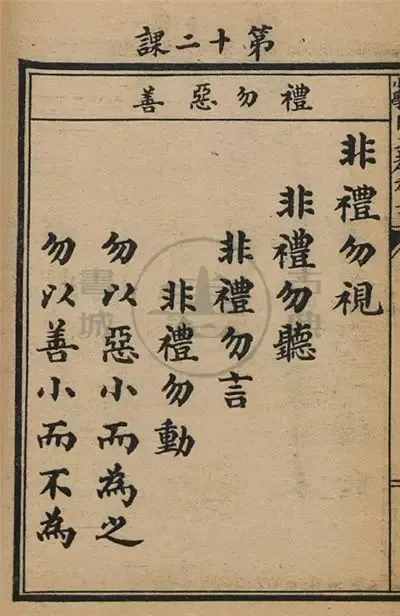 第十二課
禮勿惡善
非禮勿視
非禮勿聽
非禮勿言
非禮勿動
勿以惡小而為之
勿以善小而不為
古典書城